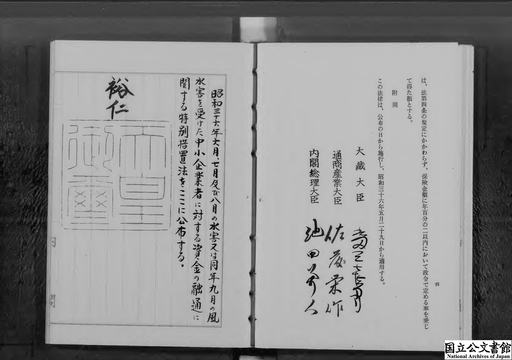 は、法第四条の規定にかかわらず、保険金額に年百分の二以内において政令で定める率を乗じ
て得た額とする。
附則
この法律は、公布の日から施行し、昭和三十六年五月二十九日から適用する。
大蔵大臣 水田三喜男
通商産業大臣 佐藤栄作
内閣総理大臣 池田勇人
昭和三十六年六月、七月及び八月の水害又は同年九月の風
水害を受けた中小企業者に対する資金の融通に
関する特別措置法をここに公布する。
裕仁
天皇
御璽
国立公文書館
National Archives of Japan